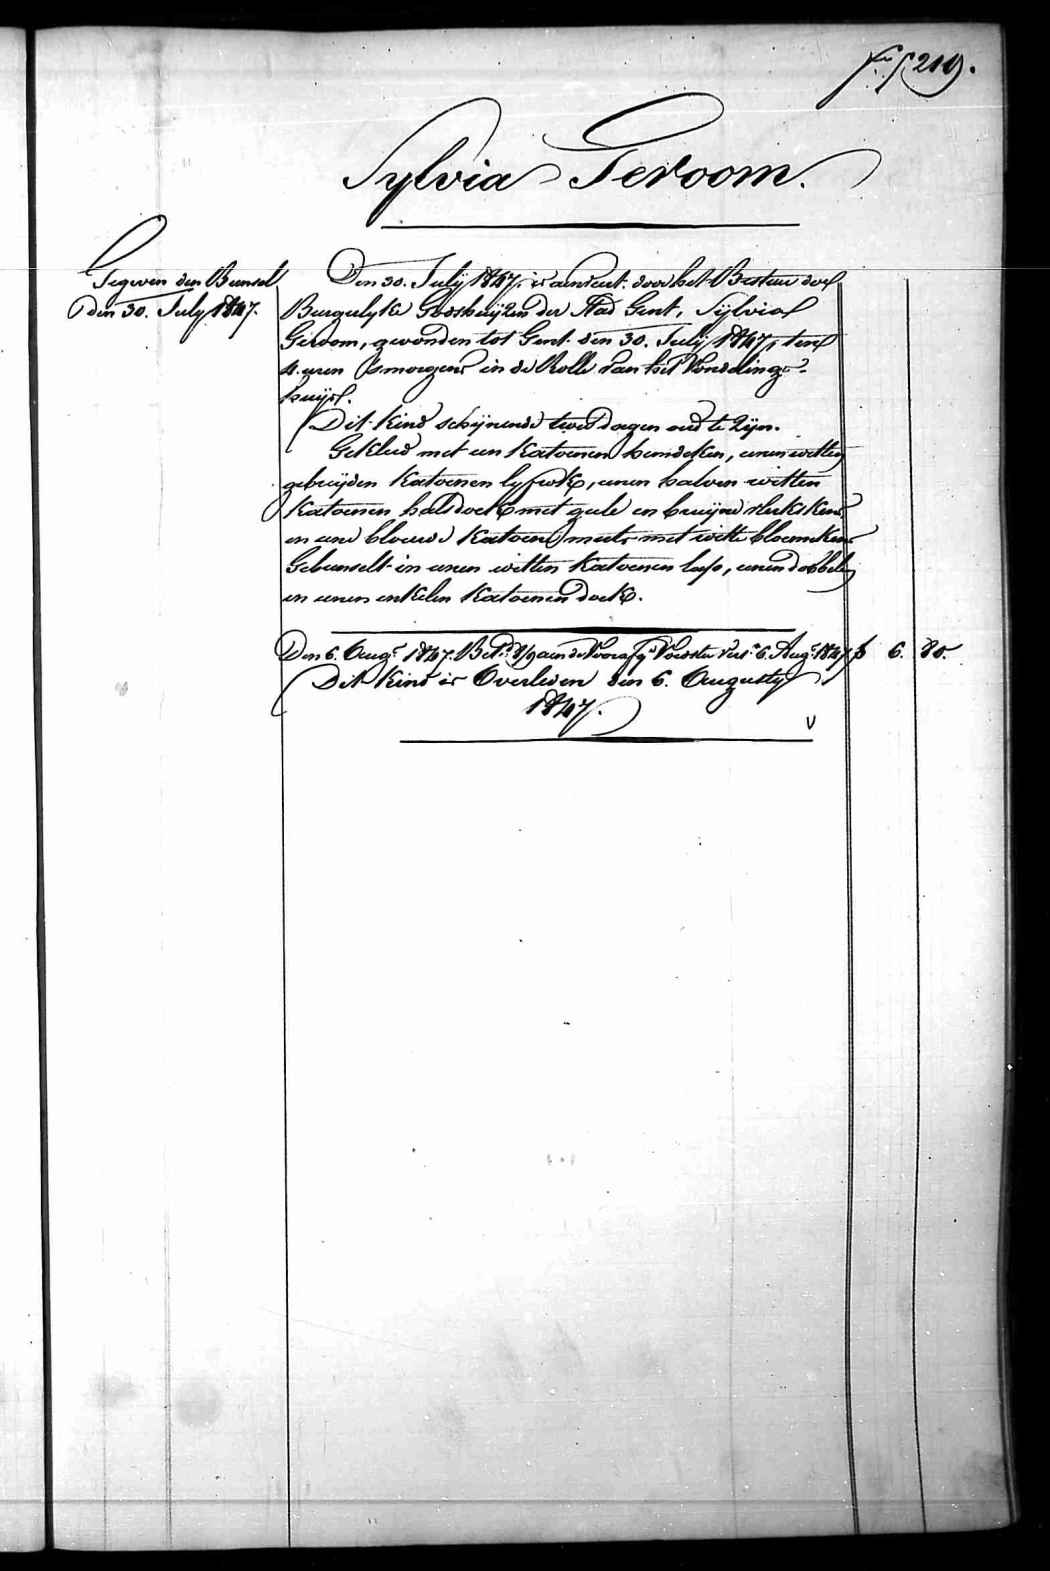 219.
Sylvia Geroom.
Gegeven den Bunsel
den 30. July 1847.
Den 30. July 1847. is aenveert door het Bestuer der
Burgerlyke Godshuyzen der Stad Gent, Sylvia
Geroom, gevonden tot Gent den 30. July 1847, ten
4. uren smorgens in de Rolle van het Vondeling-
huys.
Dit kind schynende twee dagen oud te zyn.
Gekleed met een katoenen hemdeken, eenen witten
gebreyden katoenen lyfrok, eenen halven witten
katoenen halsdoek met gele en bruyne
en eene blauwe katoene muts met witte bloemekens
Gebunselt in eenen witten katoenen lap, eenen dobbelen
en eenen enkelen katoenen doek.
Den 6. Augt 1847. Betd aen de Voedster 6. Augt 1847 6. 80.
Dit kind is Overleden den 6. Augusty
1847.